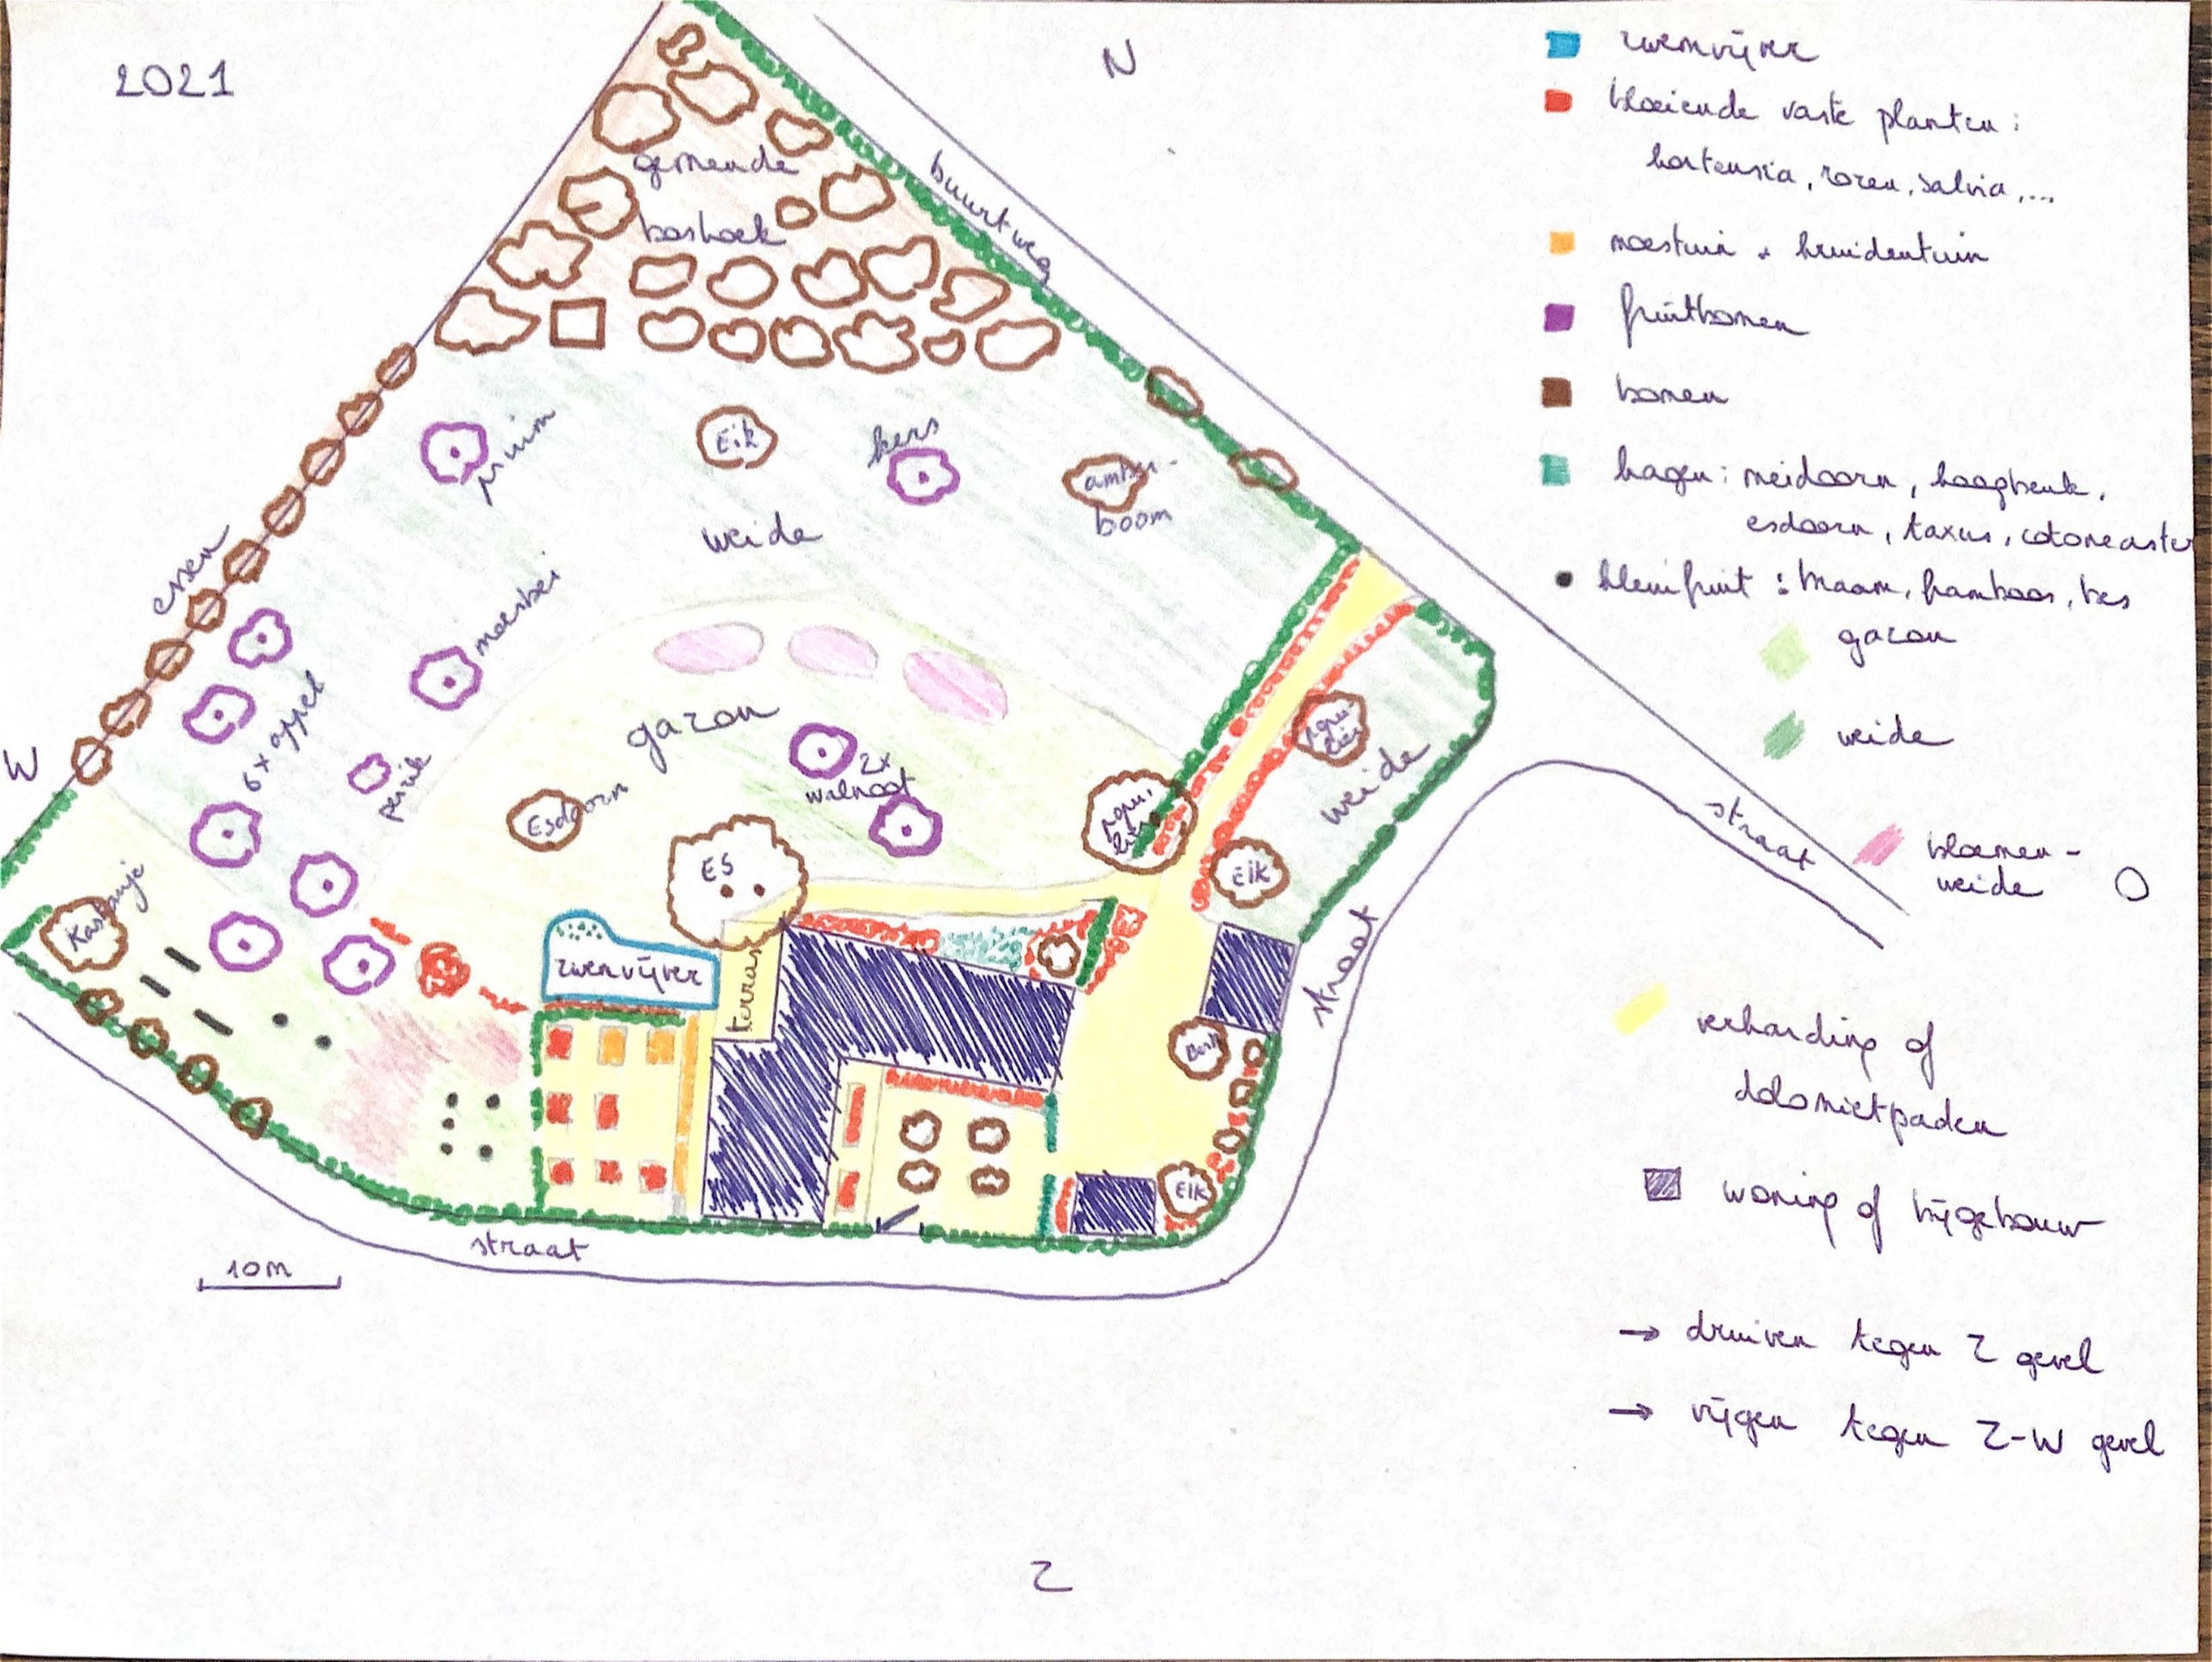 2021
N
zwemvijver
bloeiende vaste planten :
hortensia, rozen, salvia, ...
moestuin + kruidentuin
fruitbomen
bomen
hagen : meidoorn, haagbeuk,
esdoorn, taxus, cotoneaster
kleinfruit : braam, framboos, bes
gazon
weide
bloemen-
weide
O
verharding of
dolomietpaden
woning of bijgebouw
→ druiven tegen Z gevel
→ vijgen tegen Z-W gevel
buurtweg
gemengde
boshoek
pruim
Eik
kers
amber-
boom
weide
essen
moerbei
W
6x appel
perzik
gazon
2x
walnoot
Esdoorn
ES
weide
straat
Eik
Kastanje
zwemvijver
terras
straat
Berk
Eik
straat
10m
Z